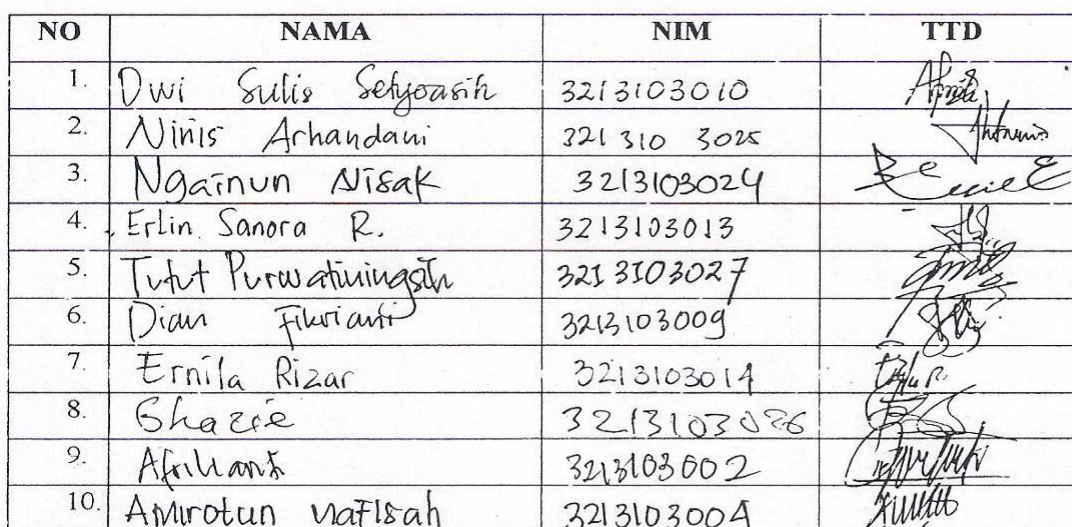 NO NAMA NIM TTD
1. Dwi Sulis Setyoasih 3213103010
2. Ninis Arhandani 321 310 3025
3. Ngainun Nisak 3213103024
4. Erlin Sanora R. 3213103013
5. Tutut Purwatiningsih 3213103027
6. Dian Fikriani 3213103009
7. Ernila Rizar 3213103014
8. Ghazie 3213103086
9. Afrikanti 3213103002
10. Amirotun Nafisah 3213103004